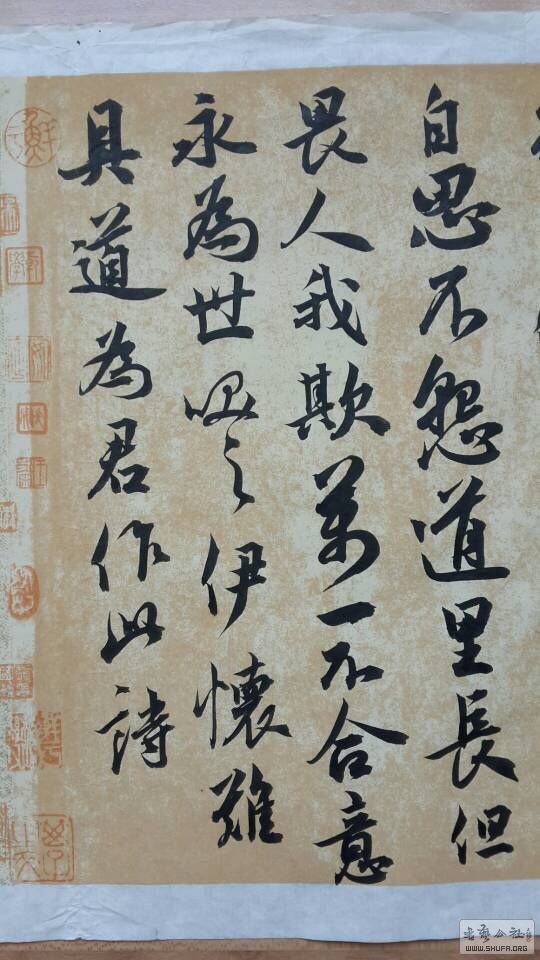 自思不怨道里長但
畏人我欺萬一不合意
永為世咲之伊懷難
具道為君作此詩
书艺公社
WWW.SHUFA.ORG